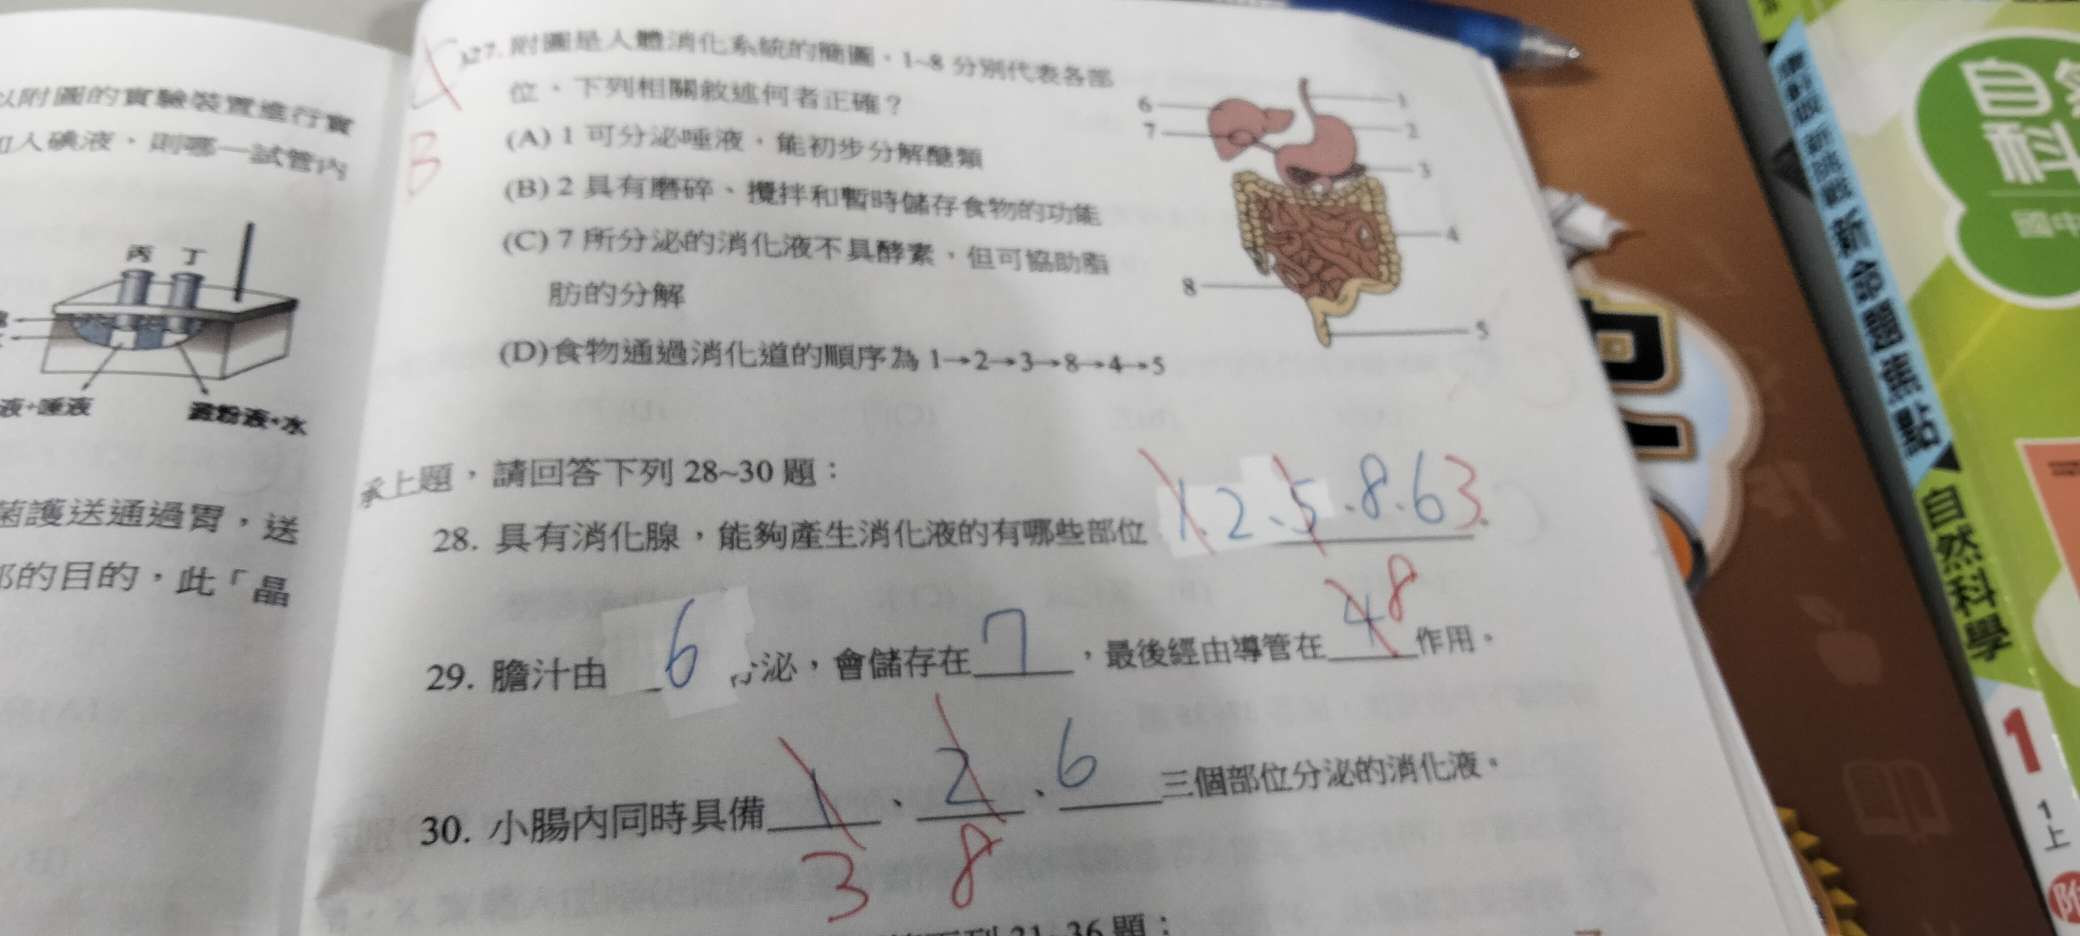 以附圖的實驗裝置進行實
加入碘液，則哪一試管內
丙 丁
液+唾液
澱粉液+水
菌護送通過胃，送
部的目的，此「晶
B
27. 附圖是人體消化系統的簡圖，1~8 分別代表各部
位，下列相關敘述何者正確？
(A) 1 可分泌唾液，能初步分解醣類
(B) 2 具有磨碎、攪拌和暫時儲存食物的功能
(C) 7 所分泌的消化液不具酵素，但可協助脂
肪的分解
(D) 食物通過消化道的順序為 1→2→3→8→4→5
6
7
8
1
2
3
4
5
承上題，請回答下列 28~30 題：
28. 具有消化腺，能夠產生消化液的有哪些部位 1.2、5.8.6 3.
29. 膽汁由 6 分泌，會儲存在 7，最後經由導管在 4 8 作用。
30. 小腸內同時具備 1、2、6 三個部位分泌的消化液。
3 8
下列 31~36 題：
自然
科
國中
新命題焦點
自然科學
1
1上
附